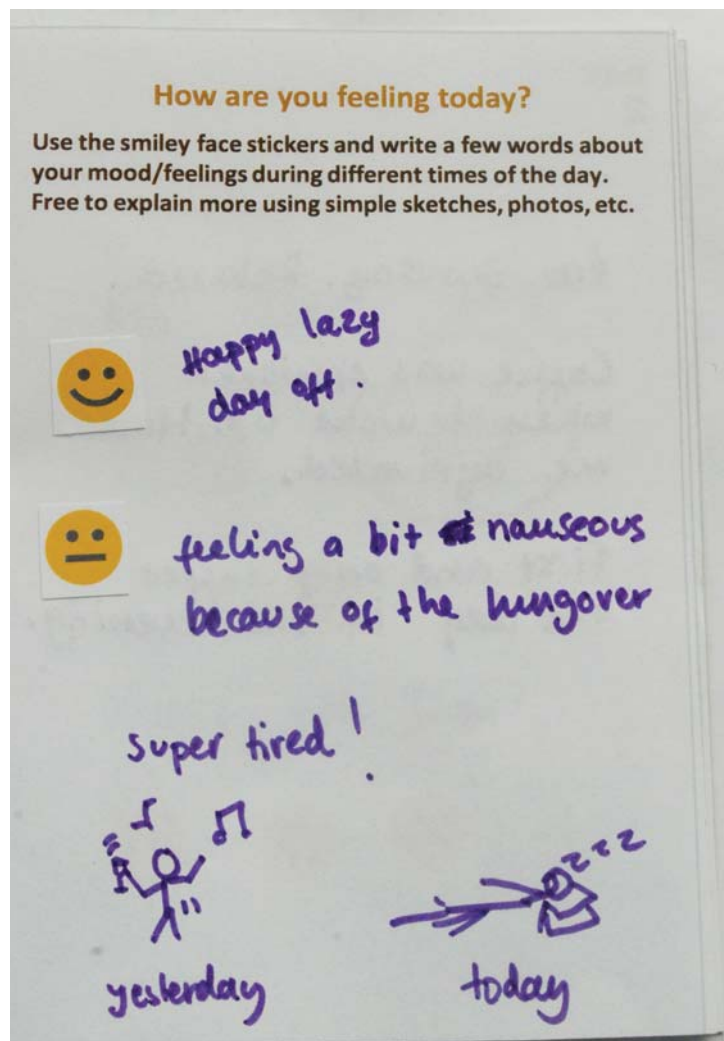 How are you feeling today?
Use the smiley face stickers and write a few words about
your mood/feelings during different times of the day.
Free to explain more using simple sketches, photos, etc.
Happy lazy
day off.
feeling a bit nauseous
because of the hungover
super tired!
z z z
yesterday
today